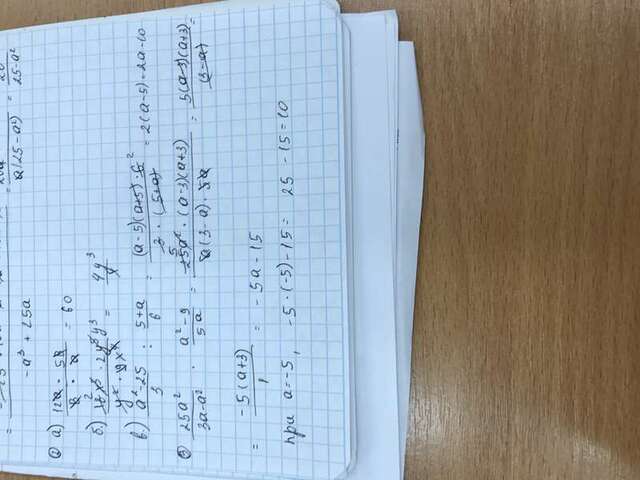 -a³ + 25a = a(25-a²) = 25-a²
② а) 12a · 5b / b · a = 60
б.) 18x³ · 2y⁸y³ / y² · 9x⁴ = 4y³ / x
в.) a²-25 / 3 : 5+a / 6 = (a-5)(a+5) · 6 2 / 3 · (5+a) = 2(a-5) = 2a-10
③ 25a² / 3a-a² · a²-9 / 5a = 5 25a² · (a-3)(a+3) / a(3-a) · 5a = 5(a-3)(a+3) / (3-a) =
= -5(a+3) / 1 = -5a-15
при a=-5, -5·(-5)-15= 25-15=10